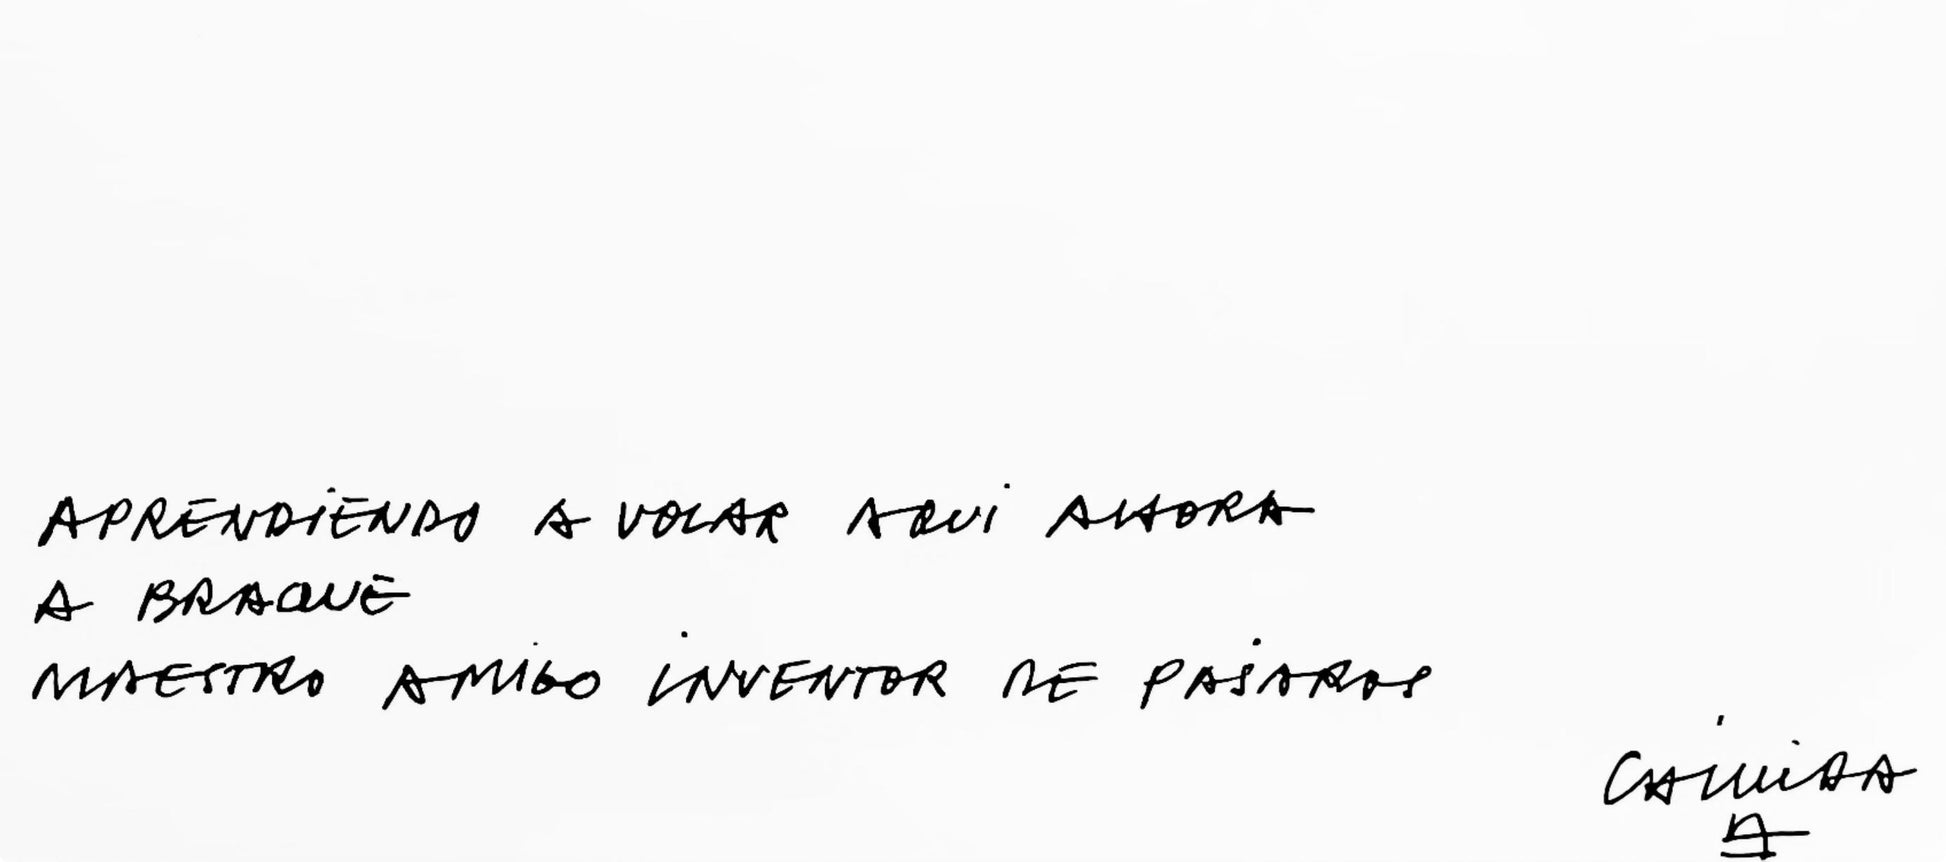 APRENDIENDO A VOLAR AQUI AHORA
A BRAQUE
MAESTRO AMIGO INVENTOR DE PAJAROS